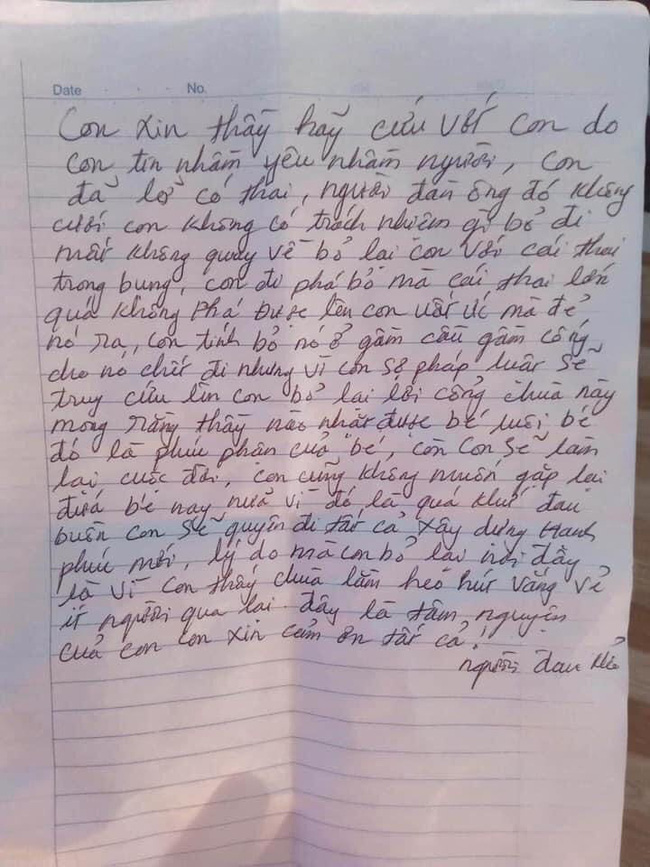 Date No.
Con xin thầy hãy cứu với con do
con tin nhầm yêu nhầm người, con
đã lở có thai, người đàn ông đó không
cưới con không có trách nhiệm gì bỏ đi
mất không quay về bỏ lại con với cái thai
trong bụng, con đi phá bỏ mà cái thai lớn
quá không phá được lên con uất ức mà đẻ
nó ra, con tính bỏ nó ở gầm cầu gầm cống
cho nó chết đi nhưng vì con sợ pháp luật sẽ
truy cứu lên con bỏ lại lối cổng chùa này
mong rằng thầy nào nhặt được bé nuôi bé
đó là phúc phận của bé, còn con sẽ làm
lại cuộc đời, con cũng không muốn gặp lại
đứa bé nay nữa vì đó là quá khứ đau
buồn con sẽ quyên đi tất cả xây dựng hạnh
phúc mới, lý do mà con bỏ lại nơi đầy
là vì con thấy chùa lằm heó hút vắng vẻ
ít người qua lại. đây là tâm nguyện
của con con xin cảm ơn tất cả!
người đau khổ